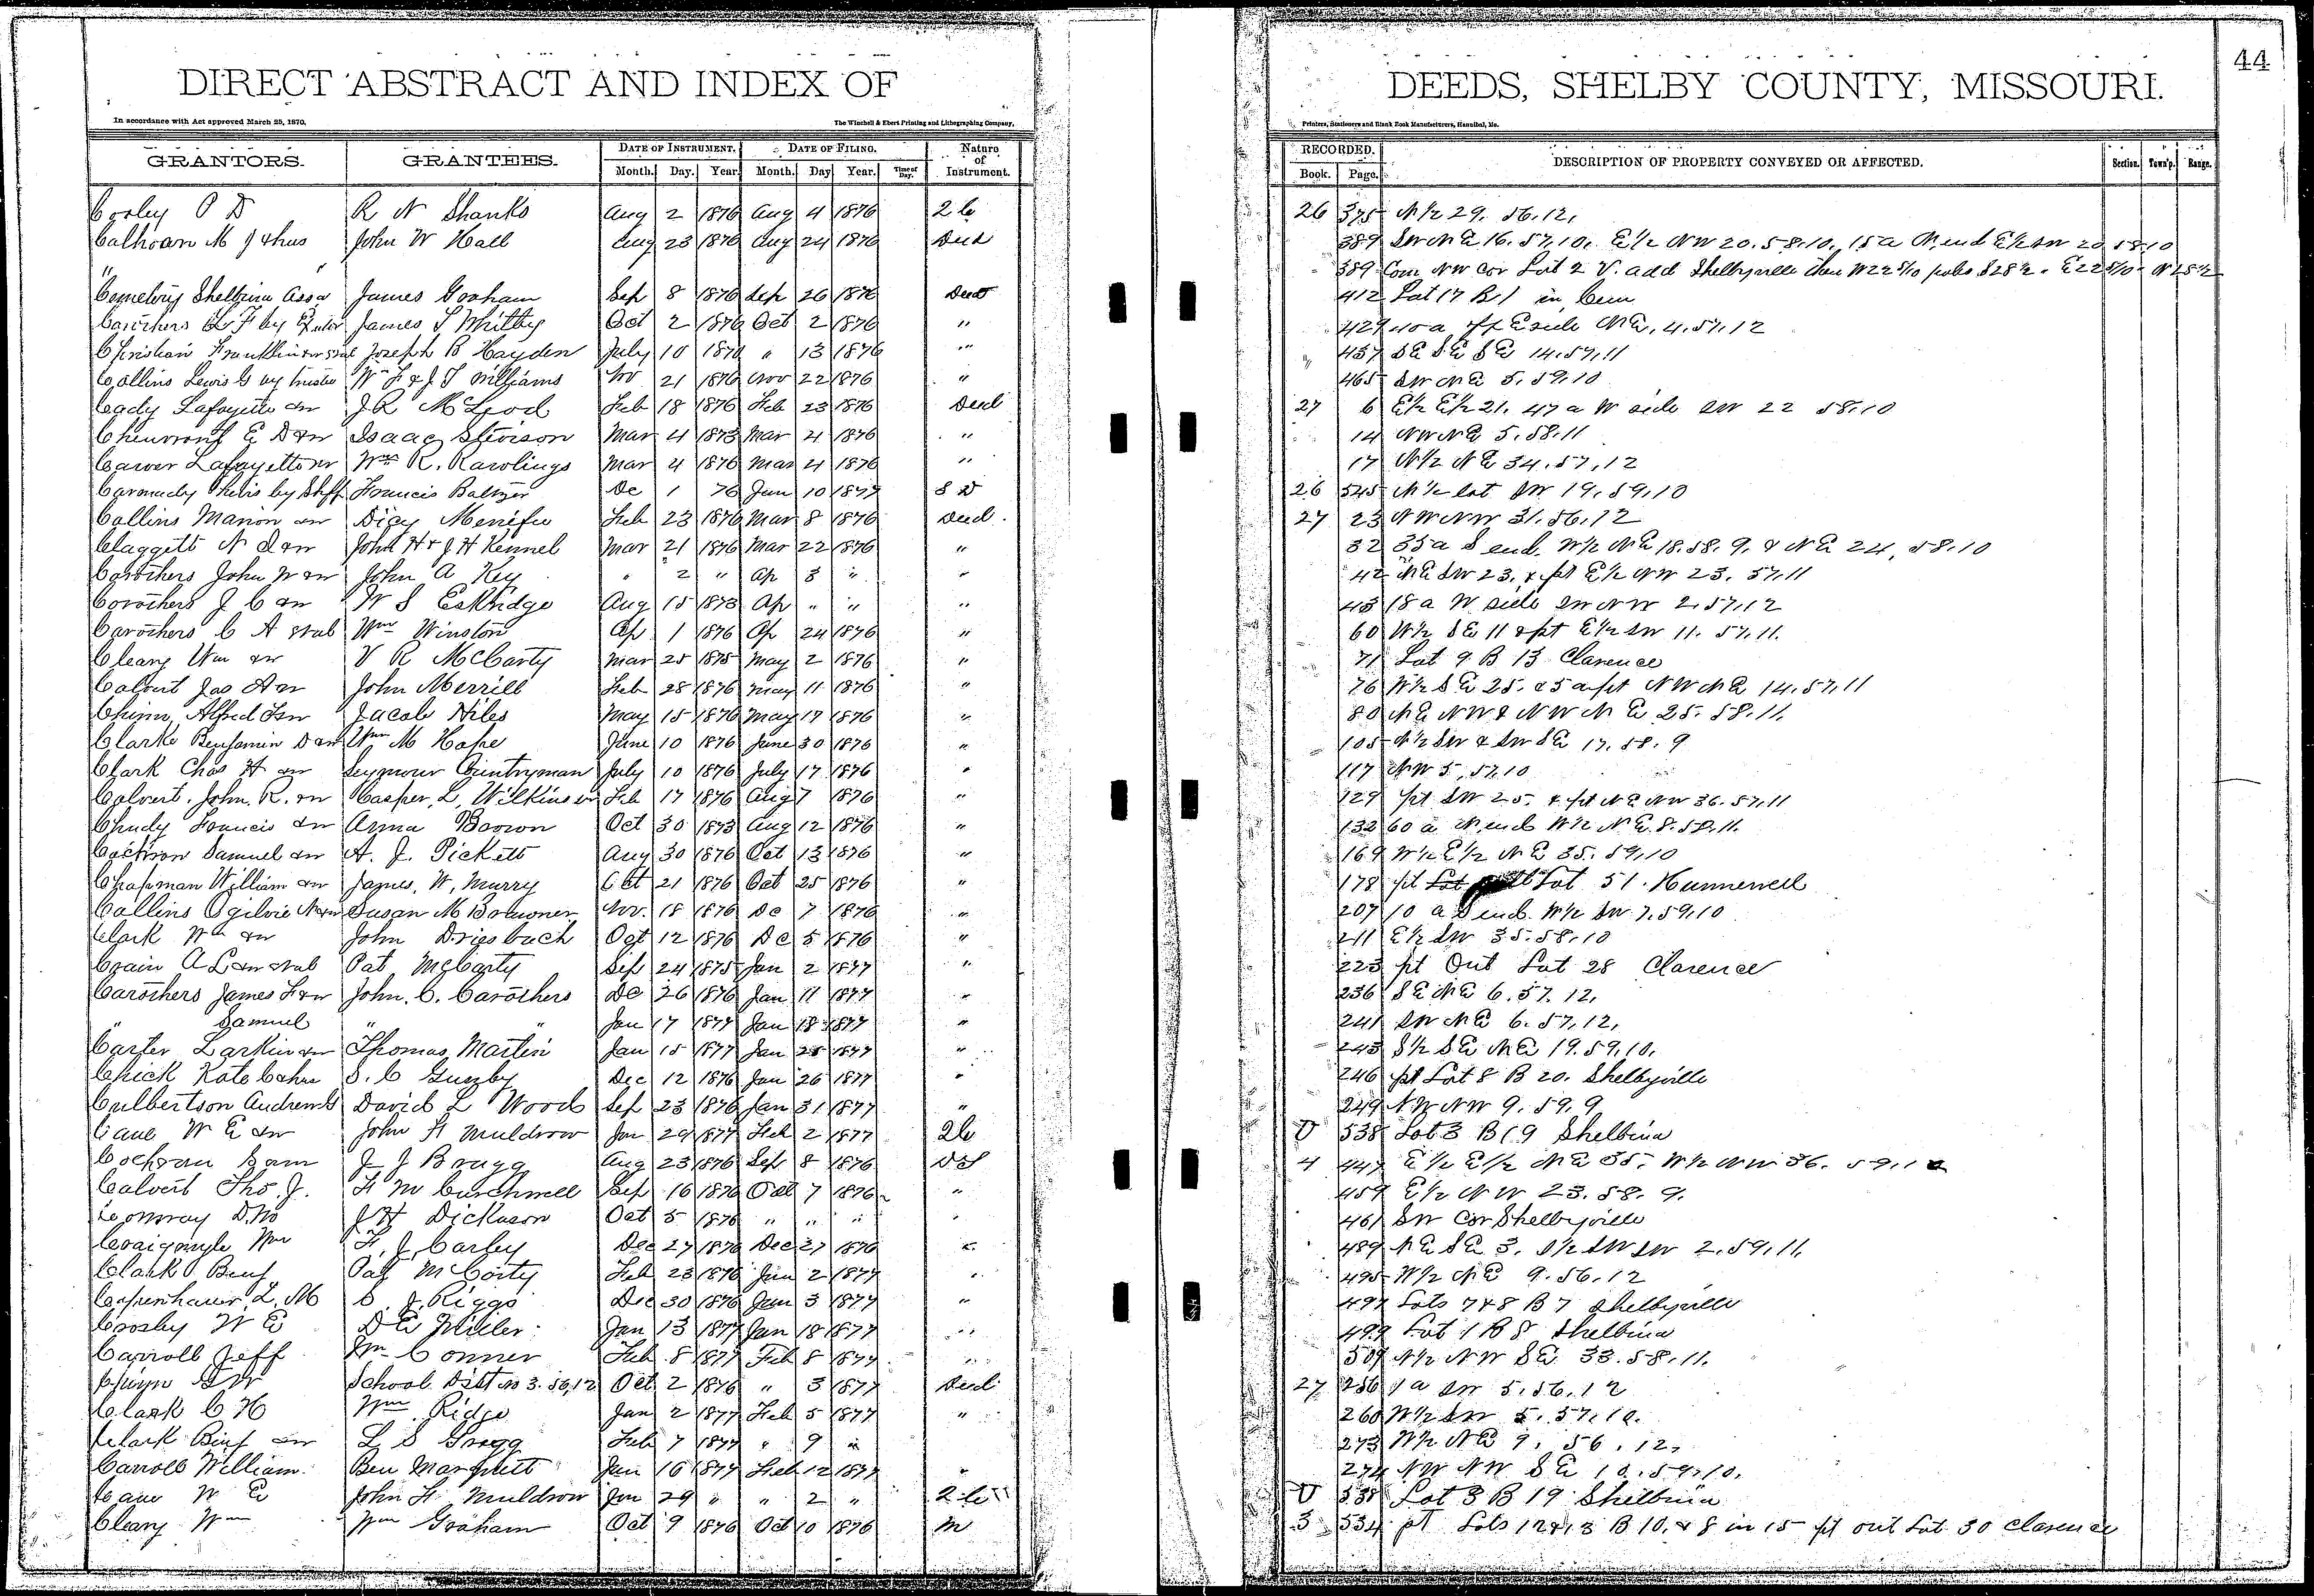 44
DIRECT ABSTRACT AND INDEX OF DEEDS, SHELBY COUNTY, MISSOURI.
In accordance with Act approved March 25, 1870. The Winchell & Ebert Printing and Lithographing Company, Printers, Stationers and Blank Book Manufacturers, Hannibal, Mo.
GRANTORS. GRANTEES. DATE OF INSTRUMENT. DATE OF FILING. Nature of Instrument. RECORDED. DESCRIPTION OF PROPERTY CONVEYED OR AFFECTED. Section. Town'p. Range.
Month. Day. Year. Month. Day Year. Time of Day. Book. Page.
Cooley O D R N Shanks Aug 2 1876 Aug 4 1876 2 C 26 375 N 1/2 29. 56.12.
Calhoun M J & hus John W Hall Aug 23 1876 Aug 24 1876 Deed 389 SW NE 16. 57.10. E 1/2 NW 20. 58.10. 15 a N end E 1/2 SW 20 58.10
" " 389 Com NW cor Lot 2 V. add Shelbyville
Cemetery Shelbina Assn James Graham Sep 8 1876 Sep 26 1876 Deed 412 Lot 17 B 1 in Cem
Carothers L F by James S Whitby Oct 2 1876 Oct 2 1876 " 429 40 a off E side NE. 4. 57.12
Franklin Joseph B Hayden July 10 1876 " 13 1876 " " 457 SE SE SE 14. 57.11
Collins Lewis G by trustee Wm F & J T Williams Nov 21 1876 Nov 22 1876 " 465 SW NE 5. 59.10
Cady Lafayette & w J R McLeod Feb 18 1876 Feb 23 1876 Deed 27 6 E 1/2 E 1/2 21. 47 a W side SW 22 58.10
E D & w Isaac Stevison Mar 4 1873 Mar 4 1876 " 14 NW NE 5. 58.11
Carver Lafayette & w Wm R. Rawlings Mar 4 1876 Mar 4 1876 " 17 N 1/2 NE 34. 57.12
by Shff Francis Baltzer De 1 76 Jan 10 1877 S D 26 545 SW 19. 59.10
Collins Marion & w Dicy Menifee Feb 23 1876 Mar 8 1876 Deed. 27 23 NW NW 31. 56.12
Claggett N D & w John H & J H Kennel Mar 21 1876 Mar 22 1876 " 32 35 a S end. W 1/2 NE 18. 58. 9. & NE 24, 58.10
Carothers John W & w John A Key " 2 " Ap 3 " " 42 NE SW 23. & pt E 1/2 NW 23. 57.11
Carothers J C & w W S Eskridge Aug 15 1873 Ap " " " 43 18 a W side SW NW 2. 57.12
Carothers C A et al Wm Winston Ap 1 1876 Ap 24 1876 " 60 W 1/2 SE 11 & pt E 1/2 SW 11. 57.11.
Cleary Wm & w V R McCarty Mar 25 1875 May 2 1876 " 71 Lot 9 B 13 Clarence
Calvert Jas A & w John Merrill Feb 28 1876 May 11 1876 " 76 W 1/2 SE 25. & 5 a pt NW NE 14. 57.11
Chinn Alfred & w Jacob Hiles May 15 1876 May 17 1876 " 80 NE NW & NW NE 25. 58.11.
Clarke Benjamin D & w Wm M Hope June 10 1876 June 30 1876 " 105 N 1/2 SW & SW SE 17. 58. 9
Clark Chas H & w Seymour Countryman July 10 1876 July 17 1876 " 117 NW 5, 57.10
Calvert. John. R. & w Casper L. Wilkinson Feb 17 1876 Aug 7 1876 " 129 pt SW 25. & pt NE NW 36. 57.11
Chudy Francis & w Anna Brown Oct 30 1873 Aug 12 1876 " 132 60 a N end W 1/2 NE. 8. 58.11.
Cochron Samuel & w A. J. Pickett Aug 30 1876 Oct 13 1876 " 169 W 1/2 E 1/2 NE 35. 59.10
Chapman William & w James. W. Murry Oct 21 1876 Oct 25 1876 " 178 pt Lot 51. Hunnewell
Collins Ogilvie N & w Susan M Nov. 18 1876 De 7 1876 " 207 10 a S end. W 1/2 SW 7. 59.10
Clark Wm & w John Driesbach Oct 12 1876 De 5 1876 " 211 E 1/2 SW 35. 58.10
Crain A L & w et al Pat McCarty Sep 24 1875 Jan 2 1877 " 223 pt Out Lot 28 Clarence
Carothers James F & w John. C. Carothers De 26 1876 Jan 11 1877 " 236 SE NE 6. 57. 12.
" Samuel " " Jan 17 1877 Jan 18 1877 " 241 SW NE 6. 57.12.
Carter Larkin & w Thomas Martin Jan 15 1877 Jan 25 1877 " 243 S 1/2 SE NE 19. 59.10.
Chick Kate S. C Gunby Dec 12 1876 Jan 26 1877 " 246 pt Lot 8 B 20. Shelbyville
Culbertson Andrew David L Woods Sep 23 1876 Jan 31 1877 " 249 NW NW 9. 59. 9
Cane W E & w John H Muldrow Jan 29 1877 Feb 2 1877 2 C U 538 Lot 3 B 19 Shelbina
Cochran Sam J J Bragg Aug 23 1876 Sep 8 1876 4 447 E 1/2 E 1/2 NE 35. W 1/2 NW 36. 59.10
Calvert Tho. J. F M Burchwell Sep 16 1876 Oct 7 1876 " 459 E 1/2 NW 23. 58. 9.
Conway D. J H Dickason Oct 5 1876 " " " " 461 SW Cor Shelbyville
Craigmyle Wm F. J. Carley Dec 27 1876 Dec 27 1876 " 489 NE SE 3. S 1/2 SW SW 2. 59.11.
Clark Benj Pat McCarty Feb 23 1876 Jan 2 1877 " 495 W 1/2 NE 9. 56.12
Copenhaver L. M J. Riggs Dec 30 1876 Jan 3 1877 " 497 Lots 7 & 8 B 7 Shelbyville
Crosby W E D E Miller Jan 13 1877 Jan 18 1877 " 499 Lot 1 B 8 Shelbina
Carroll Jeff Wm Conner Feb 8 1877 Feb 8 1877 " 509 N 1/2 NW SE 33. 58.11.
School Dist No 3. 56.12 Oct 2 1876 " 3 1877 Deed 27 256 1 a SW 5. 56.12
Clark C H Wm Ridge Jan 2 1877 Feb 5 1877 " 260 W 1/2 SW 5. 57.10.
Clark Benj & w L S Gragg Feb 7 1877 " 9 " 273 W 1/2 NE 9. 56. 12.
Carroll William Ben Marquett Jan 16 1877 Feb 12 1877 " 274 NW NW SE 10. 59.10.
Cane W E John H Muldrow Jan 29 " " 2 " 2 C U 538 Lot 3 B 19 Shelbina
Cleary Wm Wm Graham Oct 9 1876 Oct 10 1876 M 3 534 pt Lots 12 & 13 B 10. & 8 in 15 pt out Lot 30 Clarence